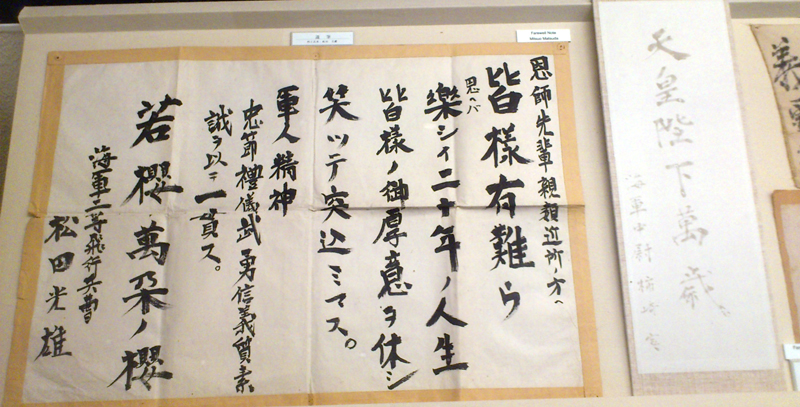 Farewell Note
恩師先輩親類近所ノ方へ
皆様有難ウ
思へバ
樂シイ二十年ノ人生
皆様ノ御厚意ヲ休シ
笑ッテ突込ミマス。
軍人精神
忠節禮儀武勇信義質素
誠ヲ以テ一貫ス。
若櫻萬朶ノ櫻
海軍二等飛行兵曹
松田光雄
天皇陛下萬歳
海軍少尉